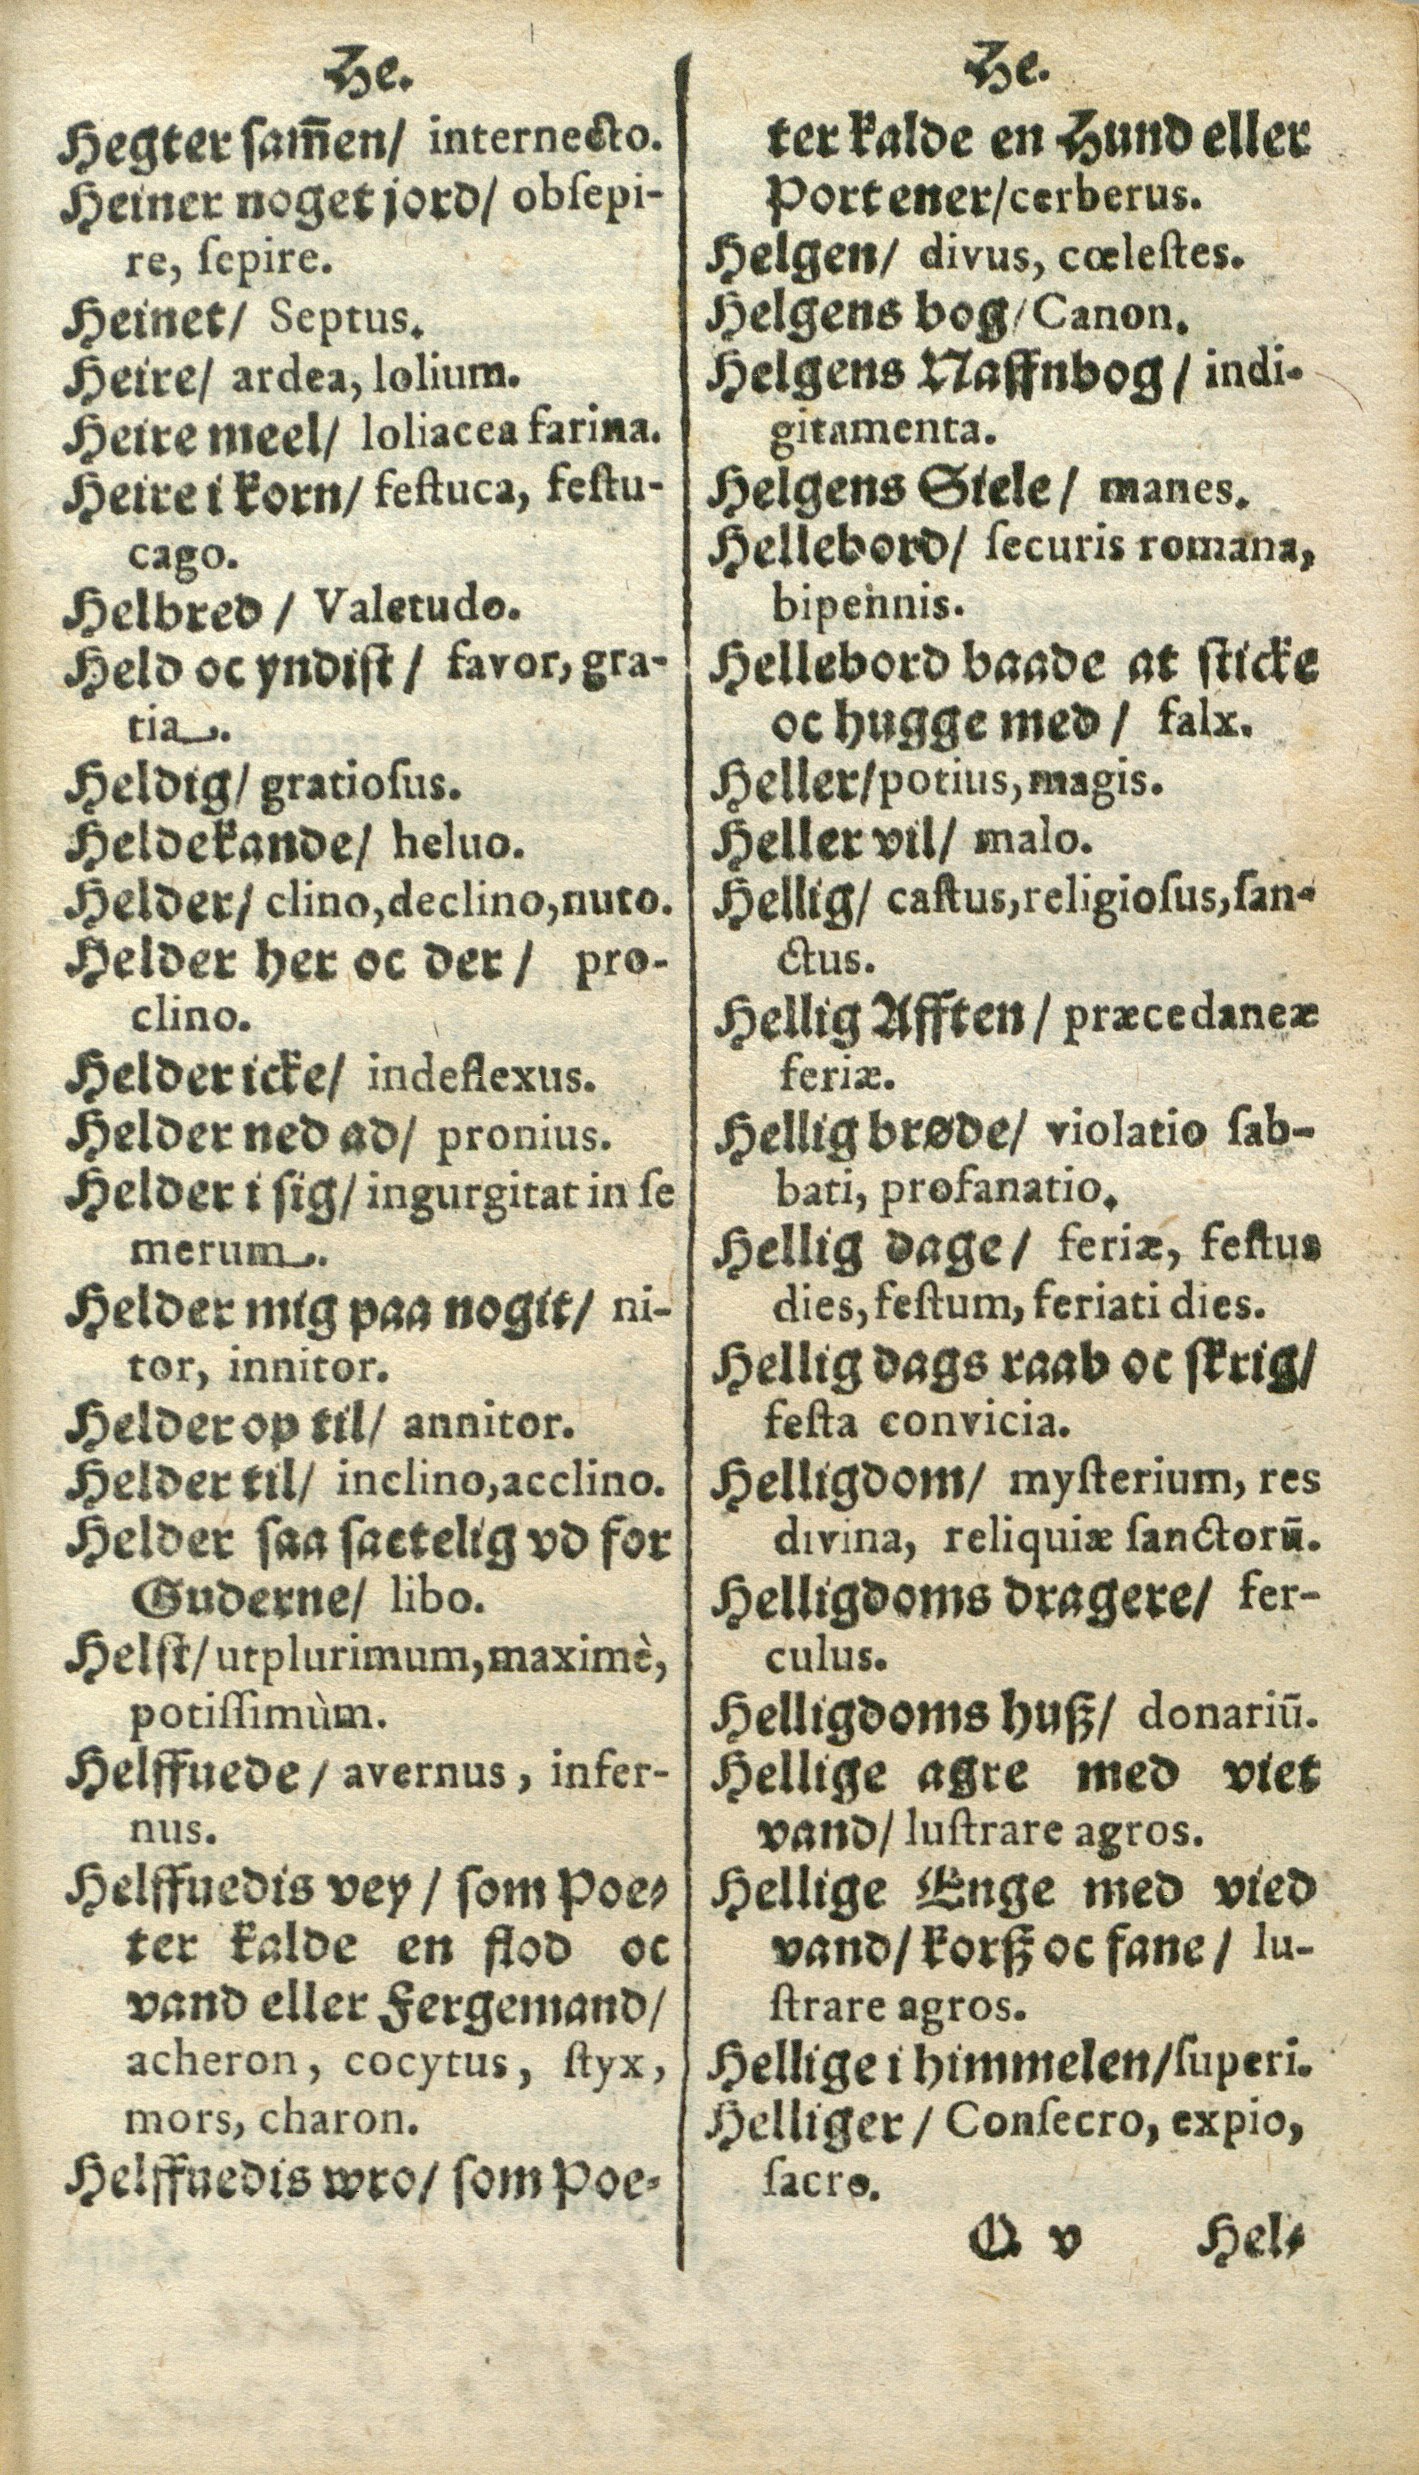 He.
Hegter sam̄en/ internecto.
Heiner noget jord/ obſepi-
re, ſepire.
Heinet/ Septus.
Heire/ ardea, lolium.
Heire meel/ loliacea farina.
Heire i korn/ feſtuca, feſtu-
cago.
Helbred / Valetudo.
Held oc yndiſt / favor, gra-
tia.
Heldig/ gratioſus.
Heldekande/ heluo.
Helder/ clino, declino, nuto.
Helder her oc der / pro-
clino.
Helder icke/ indeflexus.
Helder ned ad/ pronius.
Helder i ſig/ ingurgitat in ſe
merum.
Helder mig paa nogit/ ni-
tor, innitor.
Helder op til/ annitor.
Helder til/ inclino, acclino.
Helder ſaa ſactelig vd for
Guderne/ libo.
Helſt/ utplurimum, maximè,
potiſſimùm.
Helffuede / avernus, infer-
nus.
Helffuedis vey / ſom Poe-
ter kalde en flod oc
vand eller Fergemand/
acheron, cocytus, ſtyx,
mors, charon.
Helffuedis wro/ ſom Poe-
He.
ter kalde en Hund eller
Portener/ cerberus.
Helgen/ divus, cœleſtes.
Helgens bog/ Canon.
Helgens Naffnbog / indi-
gitamenta.
Helgens Siele / manes.
Hellebord/ ſecuris romana,
bipennis.
Hellebord baade at ſticke
oc hugge med / falx.
Heller/ potius, magis.
Heller vil/ malo.
Hellig/ caſtus, religioſus, ſan-
ctus.
Hellig Afften / præcedaneæ
feriæ.
Hellig brøde/ violatio ſab-
bati, profanatio.
Hellig dage / feriæ, feſtus
dies, feſtum, feriati dies.
Hellig dags raab oc ſkrig/
feſta convicia.
Helligdom/ myſterium, res
divina, reliquiæ ſanctorū.
Helligdoms dragere/ fer-
culus.
Helligdoms huß/ donariū.
Hellige agre med viet
vand/ luſtrare agros.
Hellige Enge med vied
vand/ korß oc fane / lu-
ſtrare agros.
Hellige i himmelen/ ſuperi.
Helliger / Conſecro, expio,
ſacro.
Q v Hel-